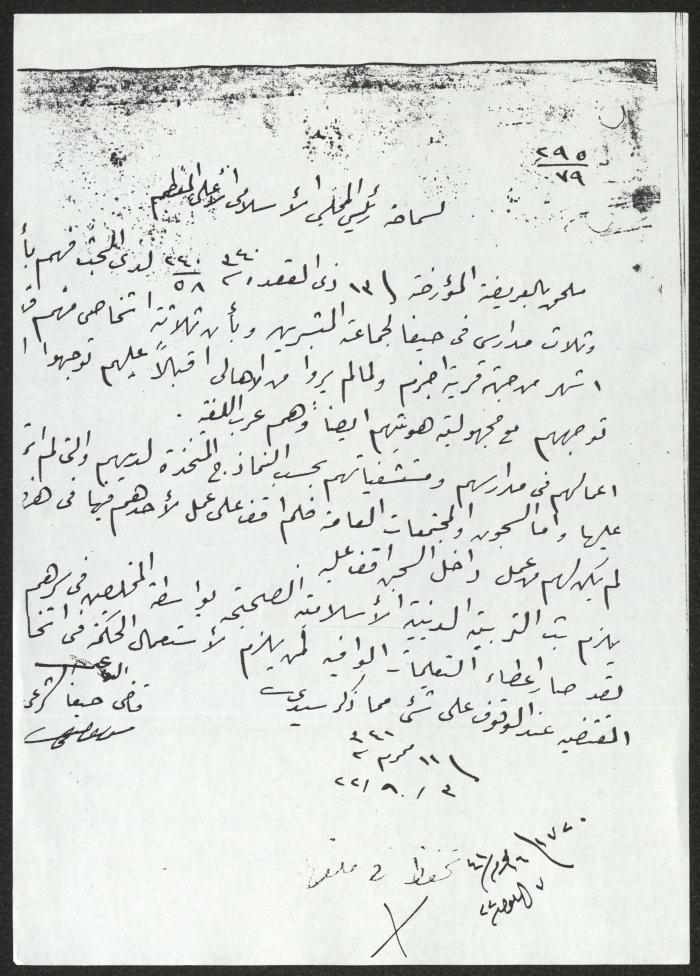 ٢٩٥
٧٩
لسماحة رئيس المجلس الأسلامي الأعلى المعظم
ملحق بالعريضة المؤرخة ١٣ ذي القعده سنة ٣٤٠ ٢٤٠/٥٨ لدى البحث فهم بأ
وثلاث مدارس في حيفا لجماعة المبشرين وبأن ثلاثة اشخاص منهم
اشهر من جهة قرية اجزم ولما لم يروا من الاهالي اقبالاً عليهم توجهوا
توجههم مع مجهولية هويتهم ايضاً وهم عرب اللغة .
اعمالهم في مدارسهم ومستشفياتهم بحسب النماذج المتخذة لديهم والتي لم
عليها واما السجون والمجتمعات العامة فلم اقف على عمل لأحدهم فيها في هذه
لم يكن لهم من عمل داخل السجن اقف عليه
يلزم بث التربية الدينية الأسلامية الصحيحة بواسطة المخلصين في سرهم
لقد صار اعطاء التعليمات الوافيه لمن يلزم لأستعمال الحكمة في اتخا
المقتضيه عند الوقوف على شئ مما ذكر سيدي
قاضي حيفا الشرعي
١١ محرم سنة ٣٤١
٣ / ٩ / ٢٢
تحفظ في ملفها